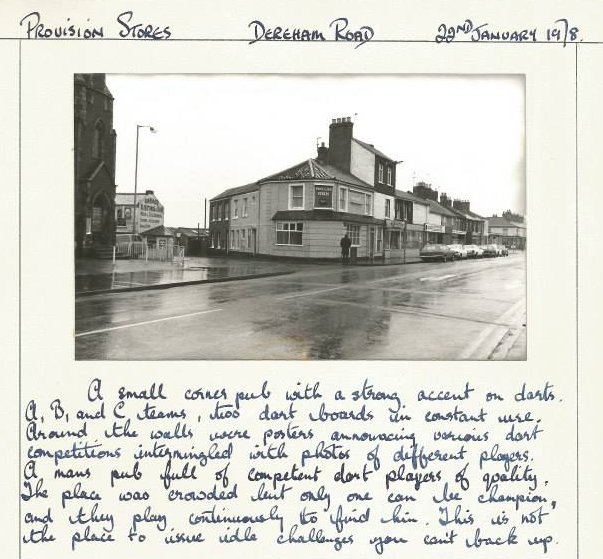 PROVISION STORES DEREHAM ROAD 22ND JANUARY 1978.
A small corner pub with a strong accent on darts.
A, B, and C teams, two dart boards in constant use.
Around the walls were posters announcing various dart
competitions intermingled with photos of different players.
A mans pub full of competent dart players of quality.
The place was crowded but only one can be champion,
and they play continuously to find him. This is not
the place to issue idle challenges you can't back up.